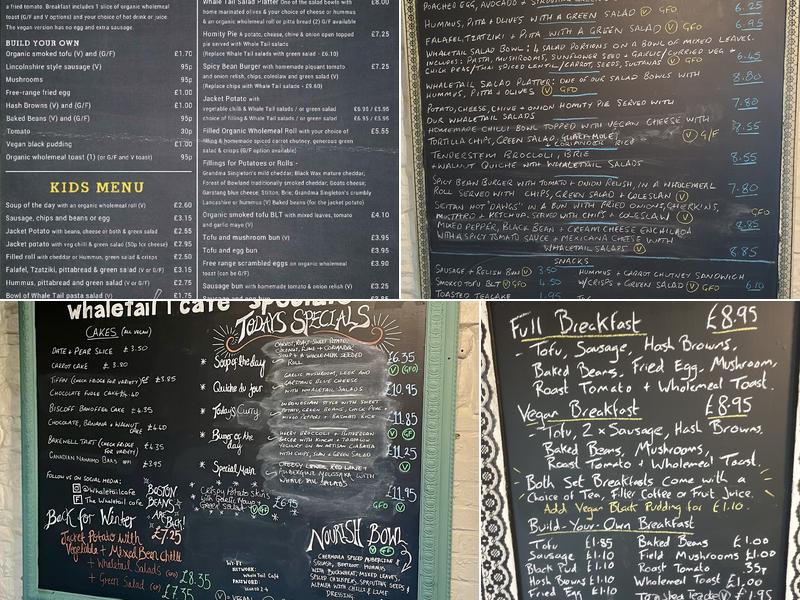 tomato. Breakfast includes 1 slice of organic wholemeal
toast (G/F and V options) and your choice of hot drink or juice.
The vegan version has no egg and extra sausage.
BUILD YOUR OWN
Organic smoked tofu (V) and (G/F) £1.70
Lincolnshire style sausage (V) 95p
Mushrooms 95p
Free-range fried egg £1.00
Hash Browns (V) and (G/F) £1.00
Baked Beans (V) and (G/F) 95p
Tomato 30p
Vegan black pudding £1.00
Organic wholemeal toast (1) (or G/F and V toast) 95p
KIDS MENU
Soup of the day with an organic wholemeal roll (V) £2.60
Sausage, chips and beans or egg £3.15
Jacket Potato with beans, cheese or both & green salad £2.55
Jacket potato with veg chilli & green salad (50p for cheese) £2.95
Filled roll with cheddar or Hummus, green salad & crisps £2.50
Falafel, Tzatziki, pittabread & green salad (V or G/F) £3.15
Hummus, pittabread and green salad (V or G/F) £2.75
Bowl of Whale Tail pasta salad (V) £1.75
Whale Tail Salad Platter One of the salad bowls with £8.00
home made olives & your choice of cheese or hummus
& an organic wholemeal roll or pitta bread (2) G/F available
Homity Pie A potato, cheese, chive & onion open topped £7.25
pie served with Whale Tail salads
(Replace Whale Tail salads with green salad - £6.10)
Spicy Bean Burger with homemade piquant tomato £7.25
and onion relish, chips, coleslaw and green salad (V)
(Replace chips with Whale Tail salads - £6.60)
Jacket Potato with
vegetable chilli & Whale Tail salads / or green salad £6.95 / £5.95
choice of filling & Whale Tail salads / or green salad £6.95 / £5.95
Filled Organic Wholemeal Roll with your choice of £5.55
filling & homemade spiced carrot chutney, generous green
salad & crisps (G/F option available)
Fillings for Potatoes or Rolls -
Grandma Singleton's mild cheddar; Black Wax mature cheddar;
Forest of Bowland traditional smoked cheddar; Goats cheese;
Garstang blue cheese; Stilton, Brie; Grandma Singleton's crumbly
Lancashire or hummus (V) Baked beans (for the jacket potato)
Organic smoked tofu BLT with mixed leaves, tomato £4.10
and garlic mayo (V)
Tofu and mushroom bun (V) £3.95
Tofu and egg bun £3.95
Free range scrambled eggs on organic wholemeal £3.90
toast (can be G/F)
Sausage bun with homemade tomato & onion relish (V) £3.25
POACHED EGG, AVOCADO +
HUMMUS, PITTA + OLIVES WITH A GREEN SALAD (V) GFO 6.25
FALAFEL, TZATZIKI + PITTA WITH A GREEN SALAD (V) GFO 6.95
WHALETAIL SALAD BOWL: 4 SALAD PORTIONS ON A BOWL OF MIXED LEAVES.
INCLUDES: PASTA, MUSHROOMS, SUNFLOWER SEED + GARLIC/CURRIED VEG + 6.45
CHICK PEAS/THAI SPICED LENTIL/CARROT, SEEDS, SULTANAS (V) GFO
WHALETAIL SALAD PLATTER: ONE OF OUR SALAD BOWLS WITH 8.80
HUMMUS, PITTA + OLIVES (V) GFO
POTATO, CHEESE, CHIVE + ONION HOMITY PIE SERVED WITH 7.80
OUR WHALETAIL SALADS
HOMEMADE CHILLI BOWL TOPPED WITH VEGAN CHEESE WITH 7.55
TORTILLA CHIPS, GREEN SALAD, GUACAMOLE (V) G/F
+ CORIANDER RICE
TENDERSTEM BROCCOLI, BRIE 8.55
+ WALNUT QUICHE WITH WHALETAIL SALADS
SPICY BEAN BURGER WITH TOMATO + ONION RELISH, IN A WHOLEMEAL 7.80
ROLL SERVED WITH CHIPS, GREEN SALAD + COLESLAW (V)
SEITAN HOT 'DAWGS' IN A BUN WITH FRIED ONIONS, GHERKINS, GFO
MUSTARD + KETCHUP. SERVED WITH CHIPS + COLESLAW (V) 8.25
MIXED PEPPER, BLACK BEAN + CREAM CHEESE ENCHILADA
WITH A SPICY TOMATO SAUCE + MEXICANA CHEESE WITH
WHALETAIL SALADS (V) 8.85
SNACKS
SAUSAGE + RELISH BUN (V) 3.50 HUMMUS + CARROT CHUTNEY SANDWICH
SMOKED TOFU BLT (V) GFO 4.50 W/CRISPS + GREEN SALAD (V) GFO 6.10
TOASTED TEACAKE 1.95
whaletail cafe
TODAYS SPECIALS
CAKES (ALL VEGAN)
DATE + PEAR SLICE £3.50
CARROT CAKE £3.80
TIFFIN (CHECK FRIDGE FOR VARIETY) £3.85
CHOCOLATE FUDGE CAKE £4.40
BISCOFF BANOFFEE CAKE £4.35
CHOCOLATE, BANANA + WALNUT CAKE £4.40
BAKEWELL TART (CHECK FRIDGE FOR VARIETY) £4.35
CANADIAN NANAIMO BARS £3.95
FOLLOW US ON SOCIAL MEDIA:
@Whaletailcafe
The Whaletail cafe
BOSTON BEANS ARE Back!
Back for Winter
Jacket Potato with £7.25
Vegetable + Mixed Bean Chilli
+ Whaletail Salads £8.35
+ Green Salad £7.35
* Soup of the day CARROT, ROAST SWEET POTATO, £6.35
COCONUT, LIME + CORIANDER
SOUP + A WHOLEMEAL SEEDED
ROLL (V) GFO
* Quiche du Jour GARLIC MUSHROOM, LEEK AND £10.95
GARSTANG BLUE CHEESE
WITH WHALETAIL SALADS
* Todays Curry INDONESIAN STYLE WITH SWEET £11.85
POTATO, GREEN BEANS, CHICK PEAS,
MIXED PEPPERS + BASMATI RICE (V) GF
* Burger of the day £11.25
WITH CHIPS, SLAW + GREEN SALAD
* Special Main £11.95
AUBERGINE MOUSSAKA WITH
WHALETAIL SALADS
* Crispy Potato Skins £6.95
with Garlic Mayo +
Green Salad (V) GF
NOURISH BOWL
CHERMOULA SPICED AUBERGINE &
SQUASH, BEETROOT HUMMUS
WITH BUCKWHEAT, MIXED LEAVES,
SPICED CHICKPEAS, SPROUTING SEEDS &
DRESSING
Wi-Fi
NETWORK:
Whale Tail Cafe
PASSWORD:
(V) = VEGAN
Full Breakfast £8.95
- Tofu, Sausage, Hash Browns,
Baked Beans, Fried Egg, Mushroom,
Roast Tomato + Wholemeal Toast.
Vegan Breakfast £8.95
- Tofu, 2 x Sausage, Hash Browns,
Baked Beans, Mushrooms,
Roast Tomato + Wholemeal Toast.
Both Set Breakfasts come with a
Choice of Tea, Filter Coffee or Fruit Juice.
Add Vegan Black Pudding for £1.10.
Build-Your-Own Breakfast
Tofu £1.85 Baked Beans £1.00
Sausage £1.10 Field Mushrooms £1.00
Black Pud £1.10 Roast Tomato .35p
Hash Browns £1.10 Wholemeal Toast £1.00
Fried Egg £1.10 Toasted Teacake (V) £1.95